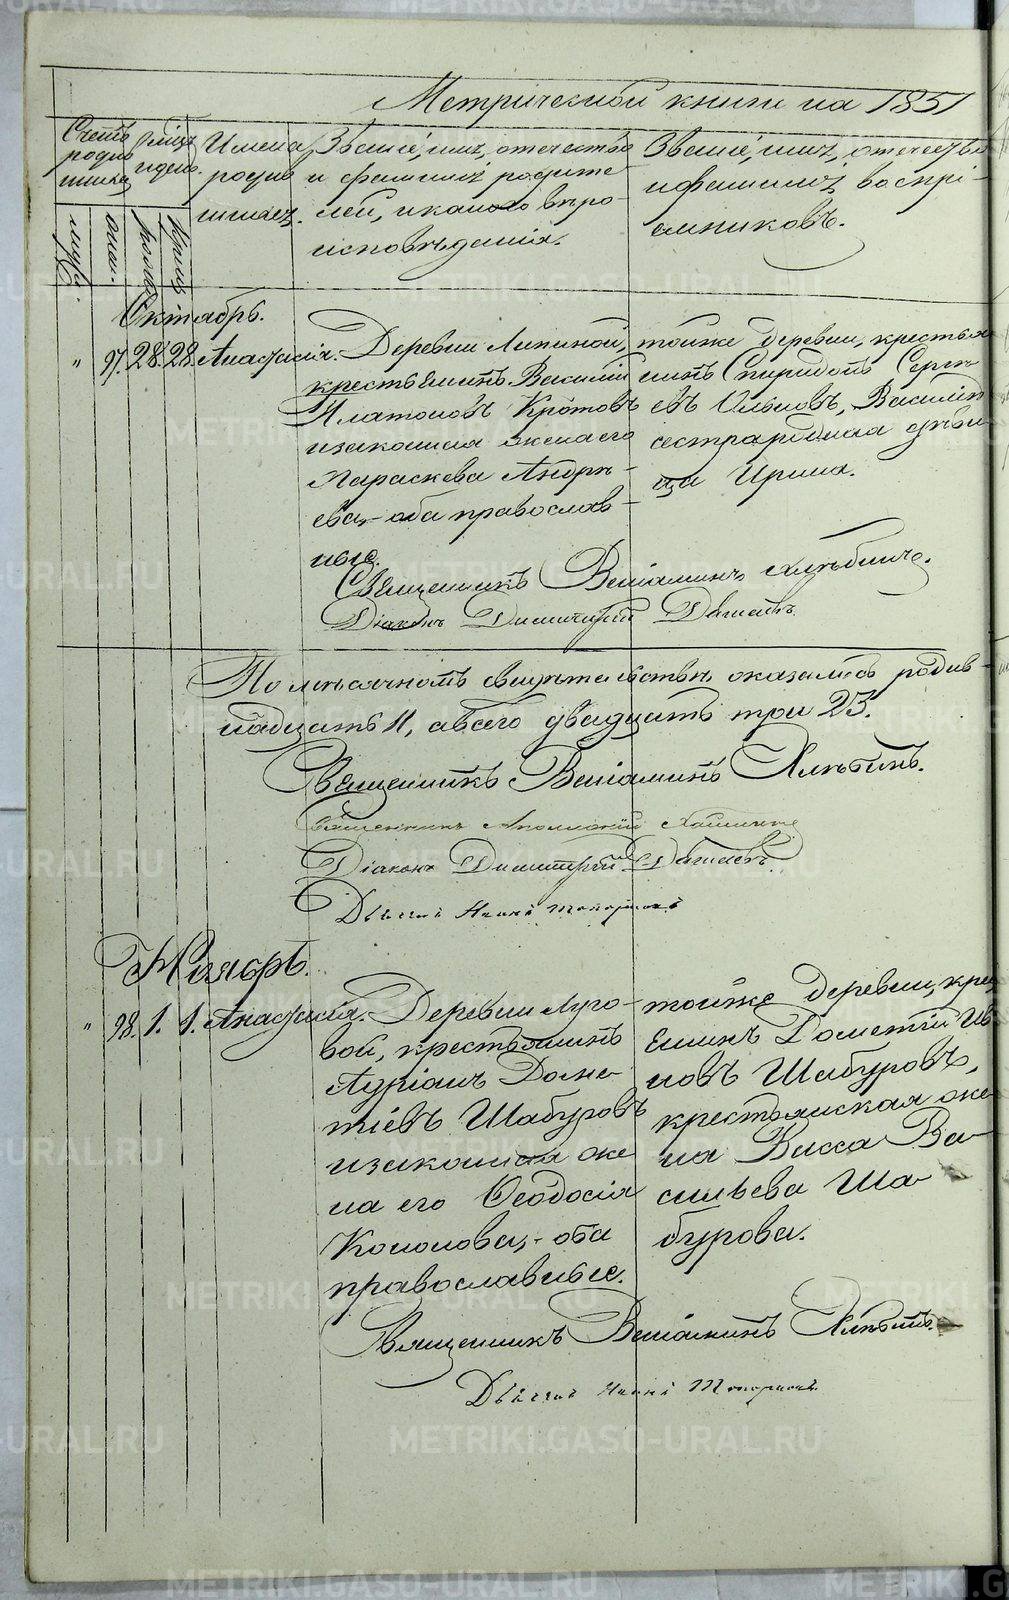 Метрической книги на 1851
Счетъ родившихся
мужс.
женс.
Имена родившихся.
Званіе, имя, отечество и фамилія родителей, и какого вѣроисповѣданія.
Званіе, имя, отечество и фамилія воспріемниковъ.
Октябрь.
" 97. 28. 28. Анастасія.
Деревни Липиной,
крестьянинъ Василій
Платоновъ Кротовъ
и законная жена его
Параскева Андре-
ева, оба православ-
ные.
тойже деревни, крестья-
нинъ Спиридонъ Серге-
евъ Ольковъ, Василія
сестра родная дѣви-
ца Ирина.
Священникъ Веніаминъ Хлѣбинъ.
Діаконъ Димитрій
По мѣсячномъ свидѣтельствѣ оказалось родив-
надцать 11, а всего двадцать три 23.
Священникъ Веніаминъ Хлѣбинъ.
Священникъ
Діаконъ Димитрій
Ноябрь.
" 98. 1. 1. Анастасія.
Деревни Луго-
вой, крестьянинъ
Адріанъ Доме-
тіевъ Шабуровъ
и законная же
на его Ѳеодосія
Кононова, оба
православные.
тойже деревни, крес
янинъ Дометій Ив
новъ Шабуровъ,
крестьянская же-
на Васса Ва-
сильева Ша-
бурова.
Священникъ Веніаминъ Хлѣбинъ.
METRIKI.GASO-URAL.RU